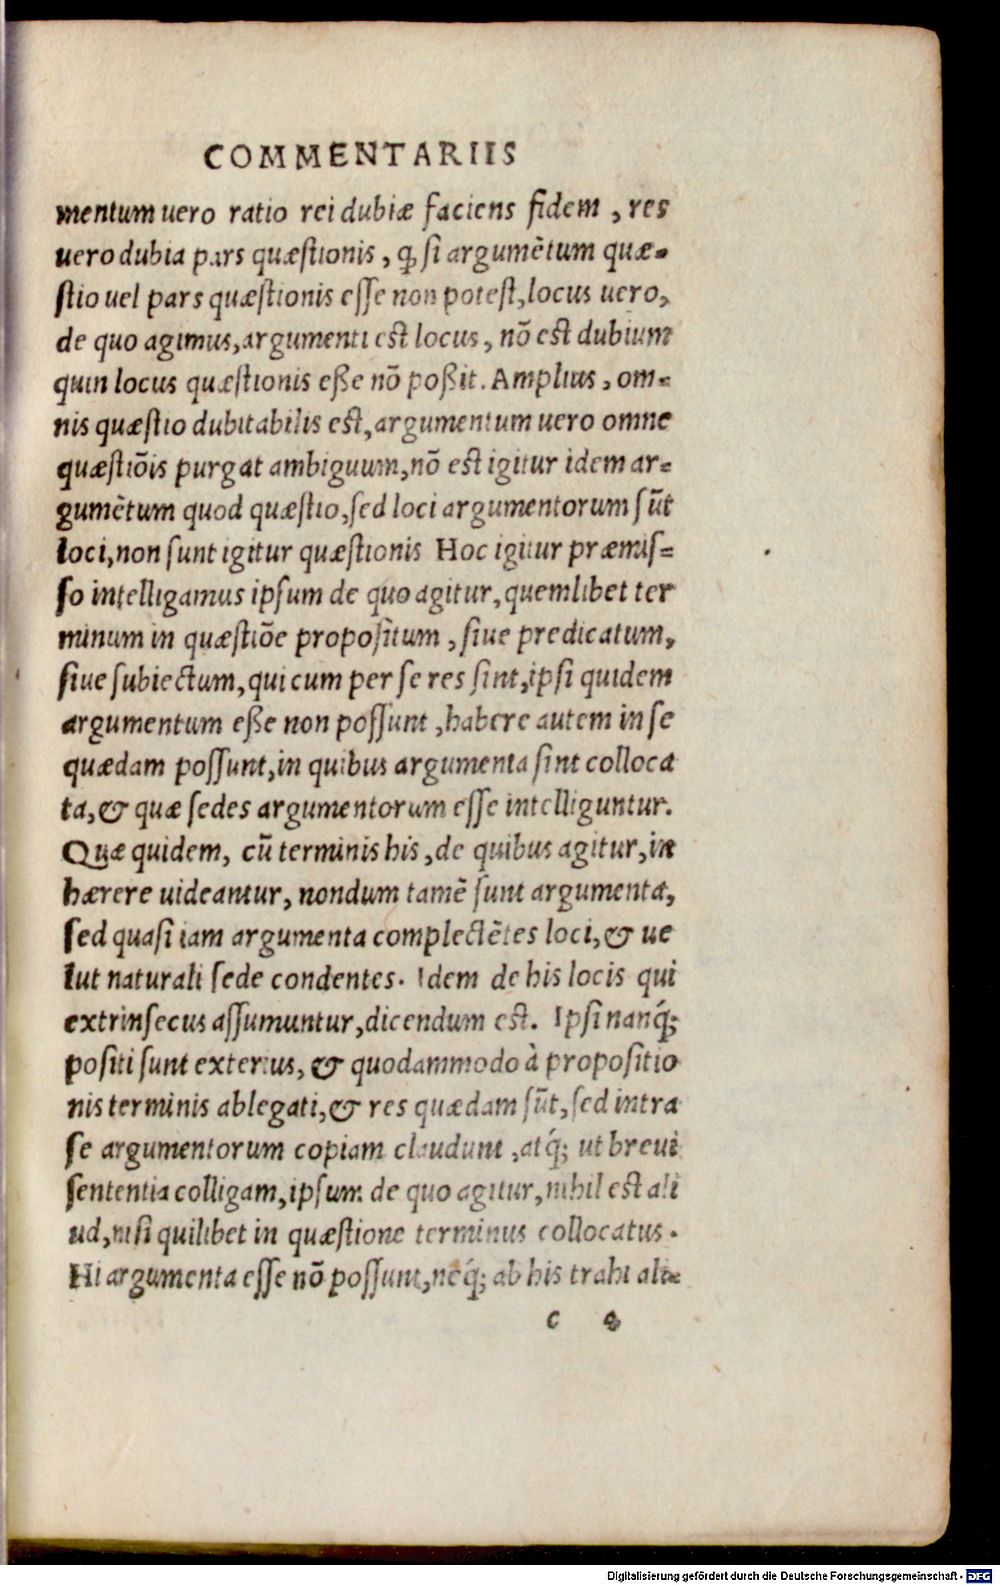 COMMENTARIIS
mentum uero ratio rei dubiæ faciens fidem , res
uero dubia pars quæstionis , ꝙ si argumẽtum quæ-
stio uel pars quæstionis esse non potest, locus uero,
de quo agimus, argumenti est locus , nõ est dubium
quin locus quæstionis eße nõ poßit. Amplius , om-
nis quæstio dubitabilis est, argumentum uero omne
quæstiõis purgat ambiguum, nõ est igitur idem ar-
gumẽtum quod quæstio, sed loci argumentorum sũt
loci, non sunt igitur quæstionis Hoc igitur præmis-
so intelligamus ipsum de quo agitur, quemlibet ter
minum in quæstiõe propositum , siue predicatum,
siue subiectum, qui cum per se res sint, ipsi quidem
argumentum eße non possunt , habere autem in se
quædam possunt, in quibus argumenta sint colloca
ta, & quæ sedes argumentorum esse intelliguntur.
Quæ quidem, cũ terminis his , de quibus agitur, in
hærere uideantur, nondum tamẽ sunt argumenta,
sed quasi iam argumenta complectẽtes loci, & ue
lut naturali sede condentes. Idem de his locis qui
extrinsecus assumuntur, dicendum est. Ipsi nanq́;
positi sunt exterius, & quodammodo à propositio
nis terminis ablegati, & res quædam sũt, sed intra
se argumentorum copiam claudunt , atq́; ut breui
sententia colligam, ipsum de quo agitur, nihil est ali
ud, nisi quilibet in quæstione terminus collocatus .
Hi argumenta esse nõ possunt, neq́; ab his trahi ali-
c 4
Digitalisierung gefördert durch die Deutsche Forschungsgemeinschaft - DFG